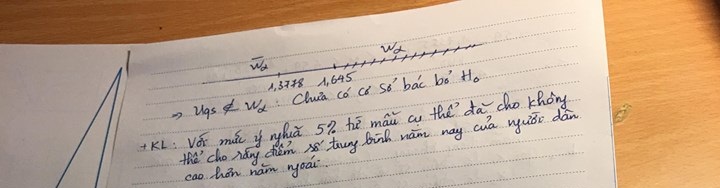 W̄α Wα
1,3778 1,645
⇒ Uqs ∉ Wα : Chưa có cơ sở bác bỏ H₀
+ KL : Với mức ý nghĩa 5% từ mẫu cụ thể đã cho không
thể cho rằng điểm số trung bình năm nay của người dân
cao hơn năm ngoái.